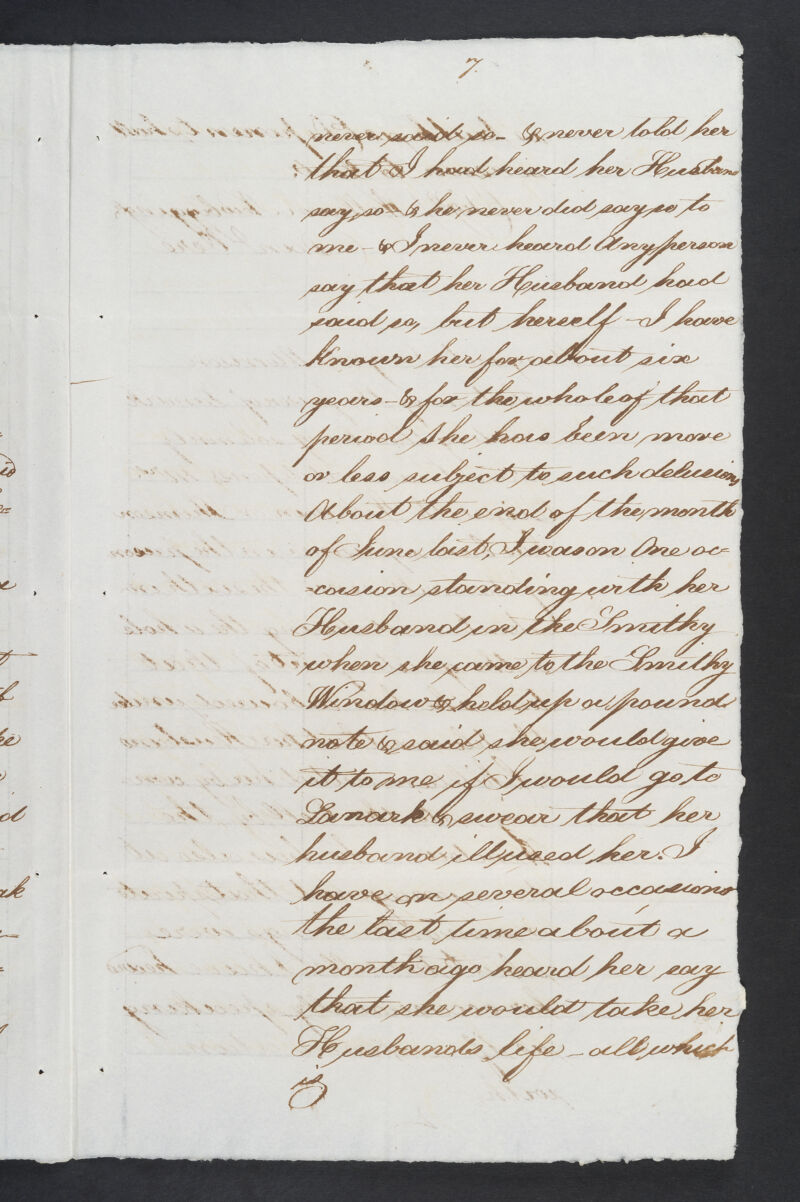 7.
never said so - & never told her
that I had heard her Husband
say so - & he never did say so to
me - & I never heard Any person
say that her Husband had
said so, but herself - I have
Known her for about six
years - & for the whole of that
period she has been more
or less subject to such delusions,
About the end of the month
of June last, I was on One oc=
=casion standing with her
Husband in the Smithy
when she came to the Smithy
Window & held up a pound
note & said she would give
it to me if I would go to
Lanark & swear that her
husband ill used her. I
have on several occasions
the last time about a
month ago heard her say
that she would take her
Husbands life - all which
is